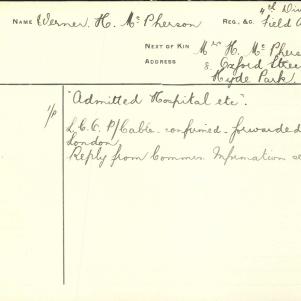 NAME Werner, H. McPherson REG. &C. 4th Div
Field A
NEXT OF KIN Mrs H. McPhers
ADDRESS 8. Oxford Stree
Hyde Park.
"Admitted Hospital etc".
L.C.C. P/Cable confirmed - forwarded
London
Reply from Common. Infirmation se